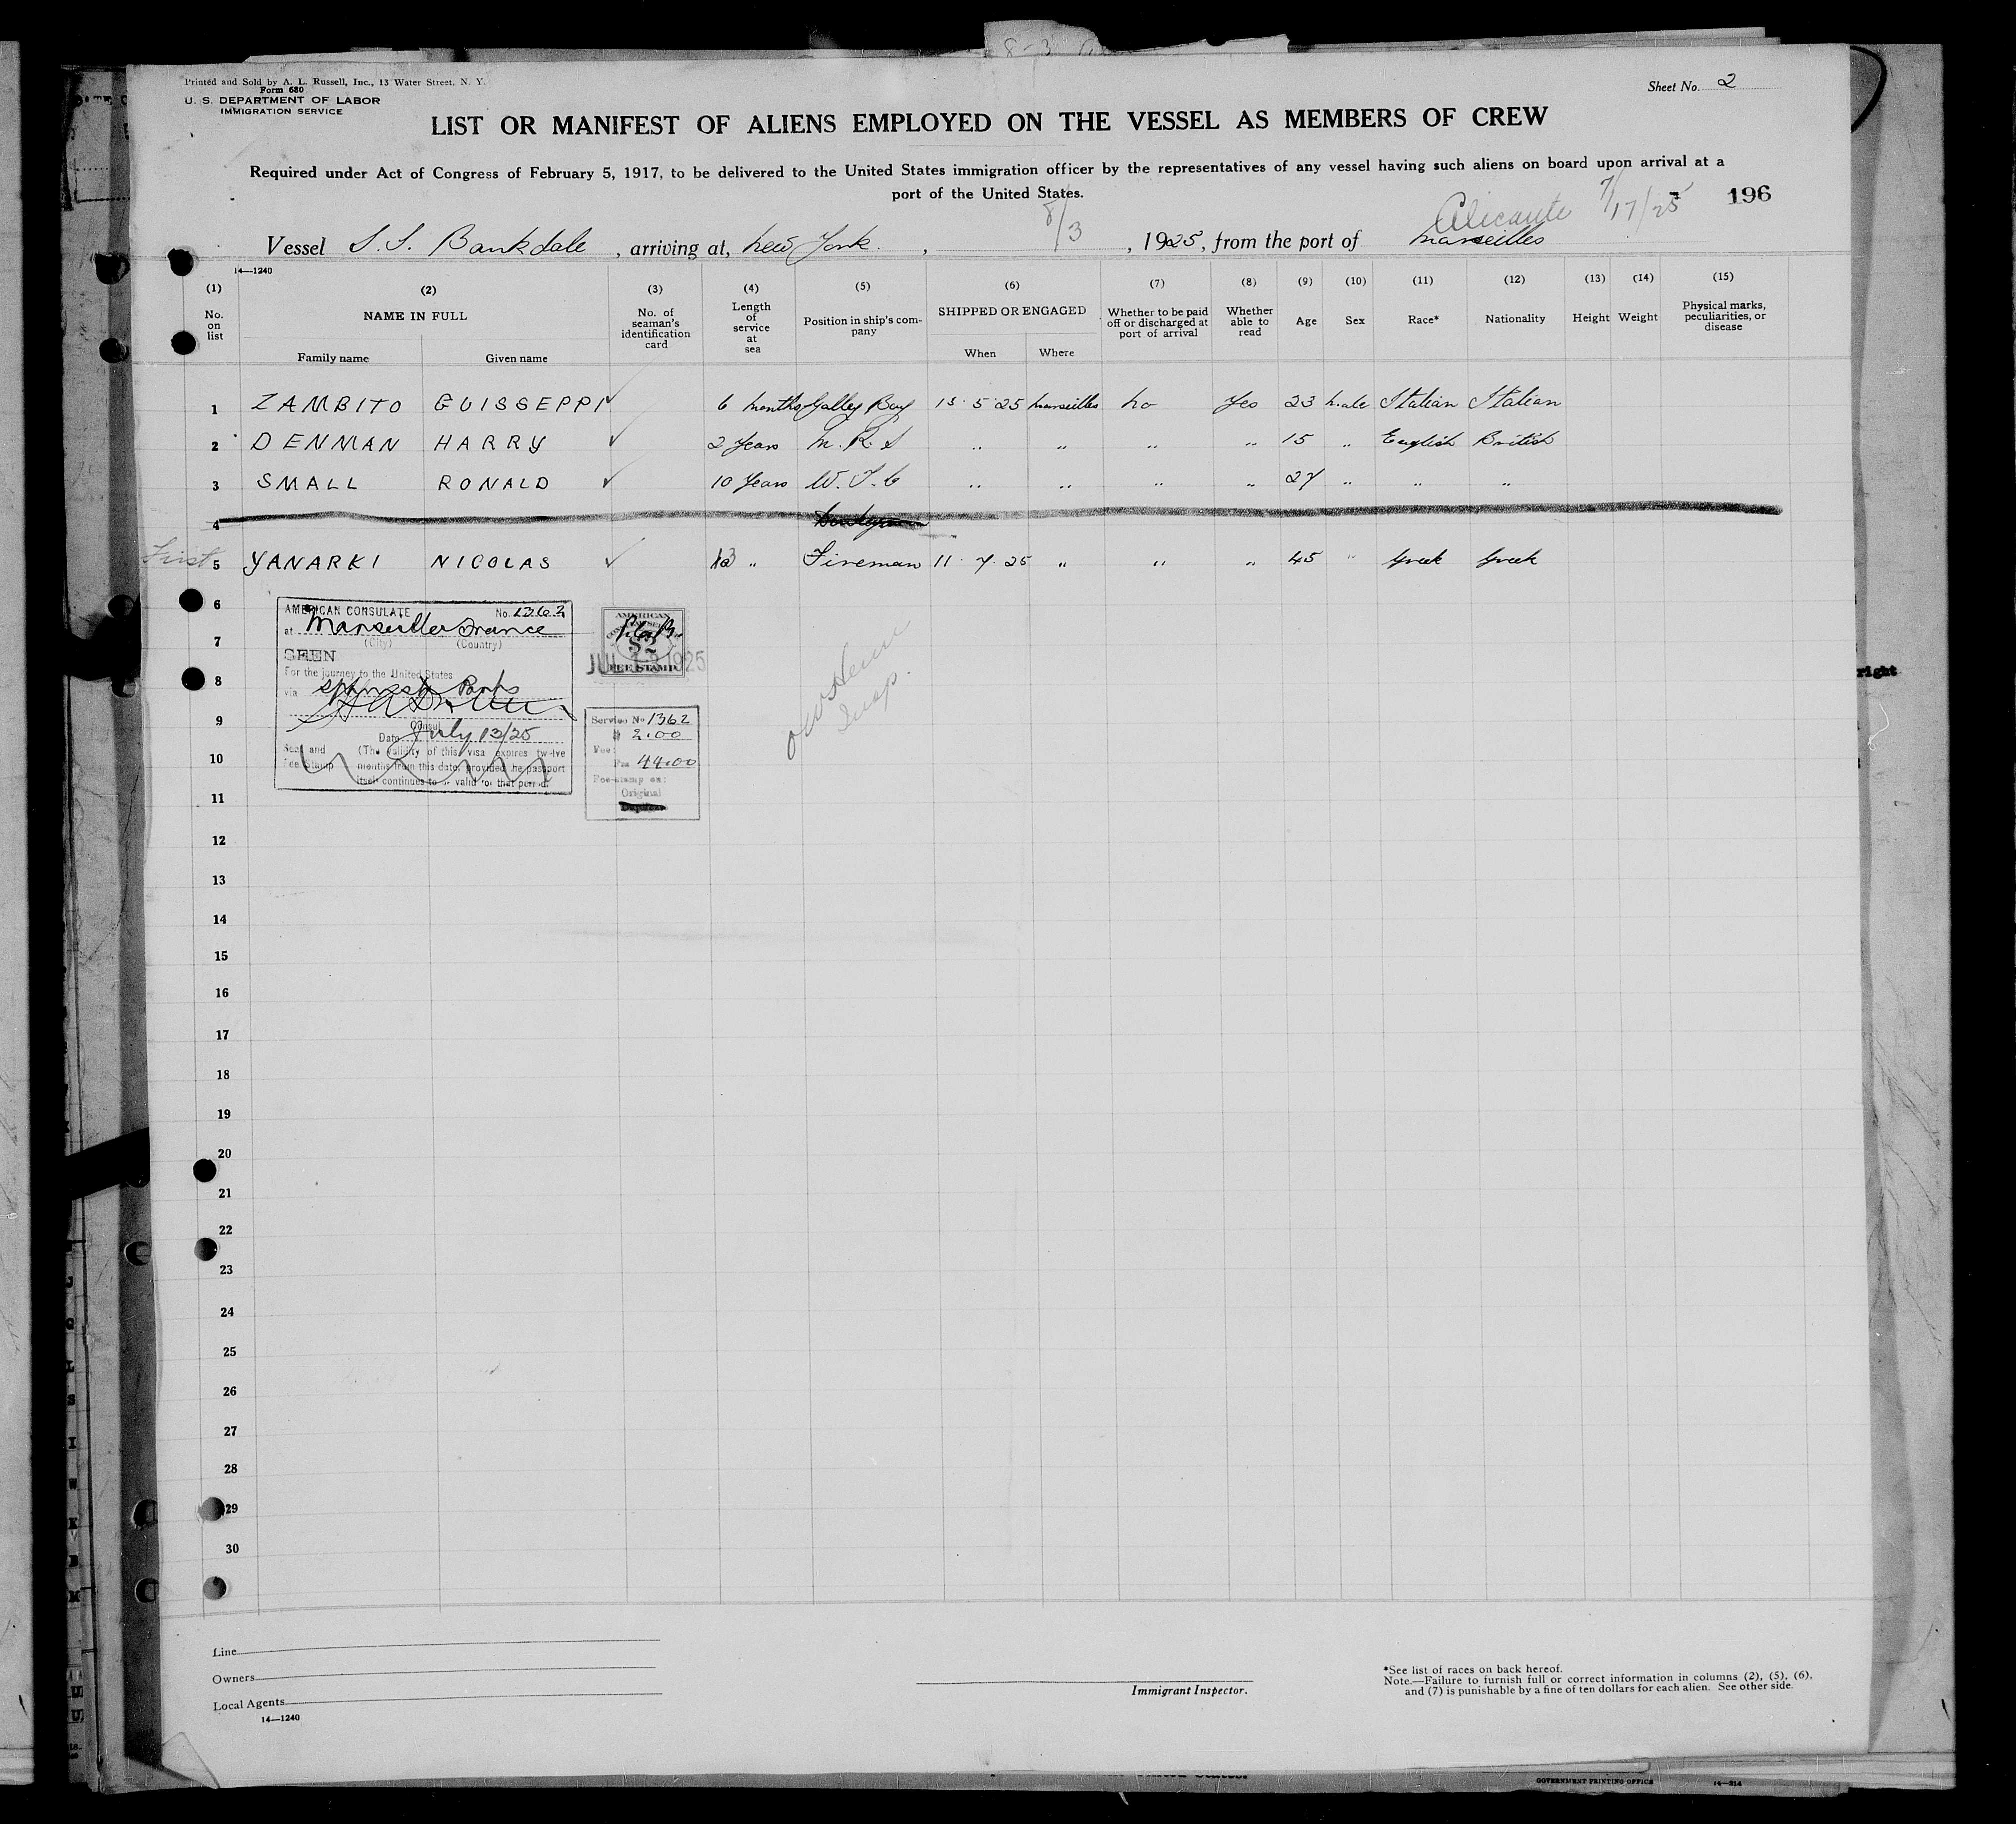 Printed and Sold by A. L. Russell, Inc., 13 Water Street, N. Y.
Form 680
U. S. DEPARTMENT OF LABOR
IMMIGRATION SERVICE
Sheet No. 2
LIST OR MANIFEST OF ALIENS EMPLOYED ON THE VESSEL AS MEMBERS OF CREW
Required under Act of Congress of February 5, 1917, to be delivered to the United States immigration officer by the representatives of any vessel having such aliens on board upon arrival at a
port of the United States.
Alicante 7/17/25 196
Vessel S. S. Bankdale, arriving at, New York, 8/3, 1925, from the port of Marseilles
14—1240
(1) No. on list
(2) NAME IN FULL Family name Given name
(3) No. of seaman's identification card
(4) Length of service at sea
(5) Position in ship's company
(6) SHIPPED OR ENGAGED When Where
(7) Whether to be paid off or discharged at port of arrival
(8) Whether able to read
(9) Age
(10) Sex
(11) Race*
(12) Nationality
(13) Height
(14) Weight
(15) Physical marks, peculiarities, or disease
1 ZAMBITO GUISSEPPI 6 Months Galley Boy 13·5·25 Marseilles No Yes 23 Male Italian Italian
2 DENMAN HARRY 2 Years M. R. S " " " " 15 " English British
3 SMALL RONALD 10 Years W. T. O " " " " 27 " " "
4
First 5 YANARKI NICOLAS 13 " Fireman 11·7·25 " " " 45 " Greek Greek
6
7
8
9
10
11
AMERICAN CONSULATE No. 1362
at Marseille France
(City) (Country)
SEEN
For the journey to the United States
via Spanish Ports
Consul
Date July 13/25
Seal and Fee Stamp
(The validity of this visa expires twelve
months from this date, provided the passport
itself continues to be valid for that period.
AMERICAN
$2
FEE STAMP
JUL 13 1925
Service No 1362
$ 2.00
Fee:
Frs 44.00
Fee-stamp on:
Original
Insp.
12
13
14
15
16
17
18
19
20
21
22
23
24
25
26
27
28
29
30
Line
Owners
Local Agents
14—1240
Immigrant Inspector.
*See list of races on back hereof.
Note.—Failure to furnish full or correct information in columns (2), (5), (6),
and (7) is punishable by a fine of ten dollars for each alien. See other side.
right
GOVERNMENT PRINTING OFFICE 14—214